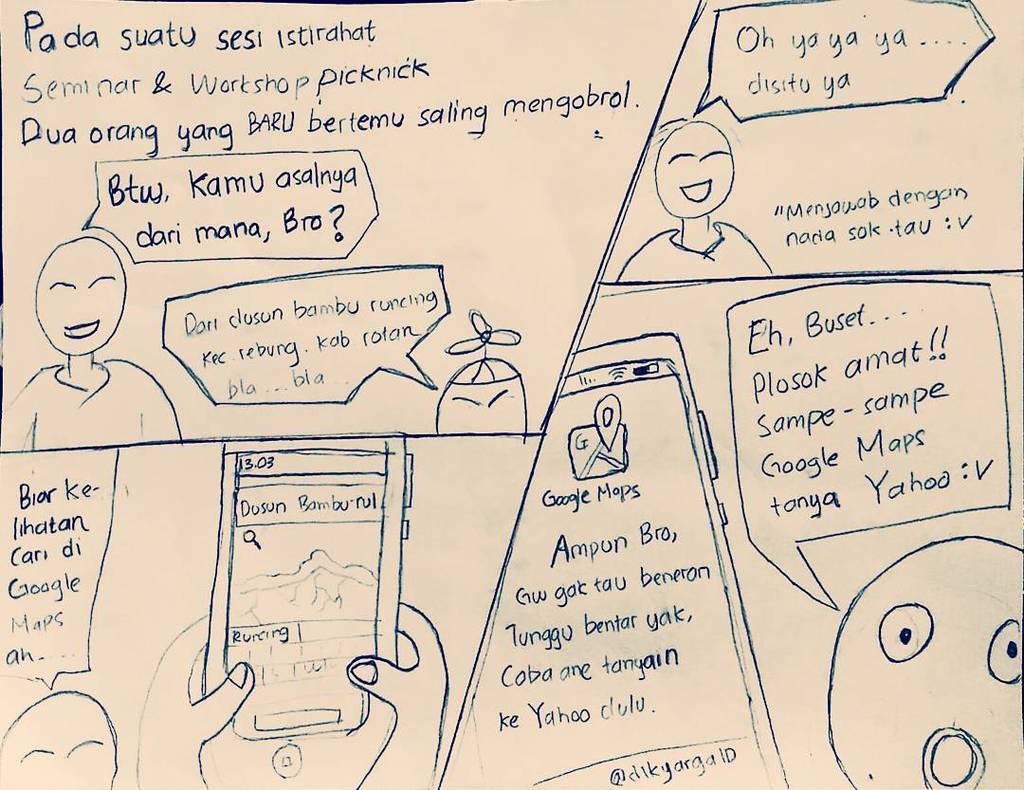 Pada suatu sesi istirahat
Seminar & Workshop picknick
Dua orang yang BARU bertemu saling mengobrol.
Btw, Kamu asalnya
dari mana, Bro?
Dari dusun bambu runcing
kec rebung. kab rotan
bla.... bla...
Oh ya ya ya .....
disitu ya
"Menjawab dengan
nada sok tau :v
Biar ke-
lihatan
Cari di
Google
Maps
ah.....
13.03
Dusun Bambu rul
Runcing |
G
Google Maps
Ampun Bro,
Gw gak tau beneran
Tunggu bentar yak,
Coba ane tanyain
ke Yahoo dulu.
@dikyargaID
Eh, Buset....
Plosok amat!!
Sampe-sampe
Google Maps
tanya Yahoo :v